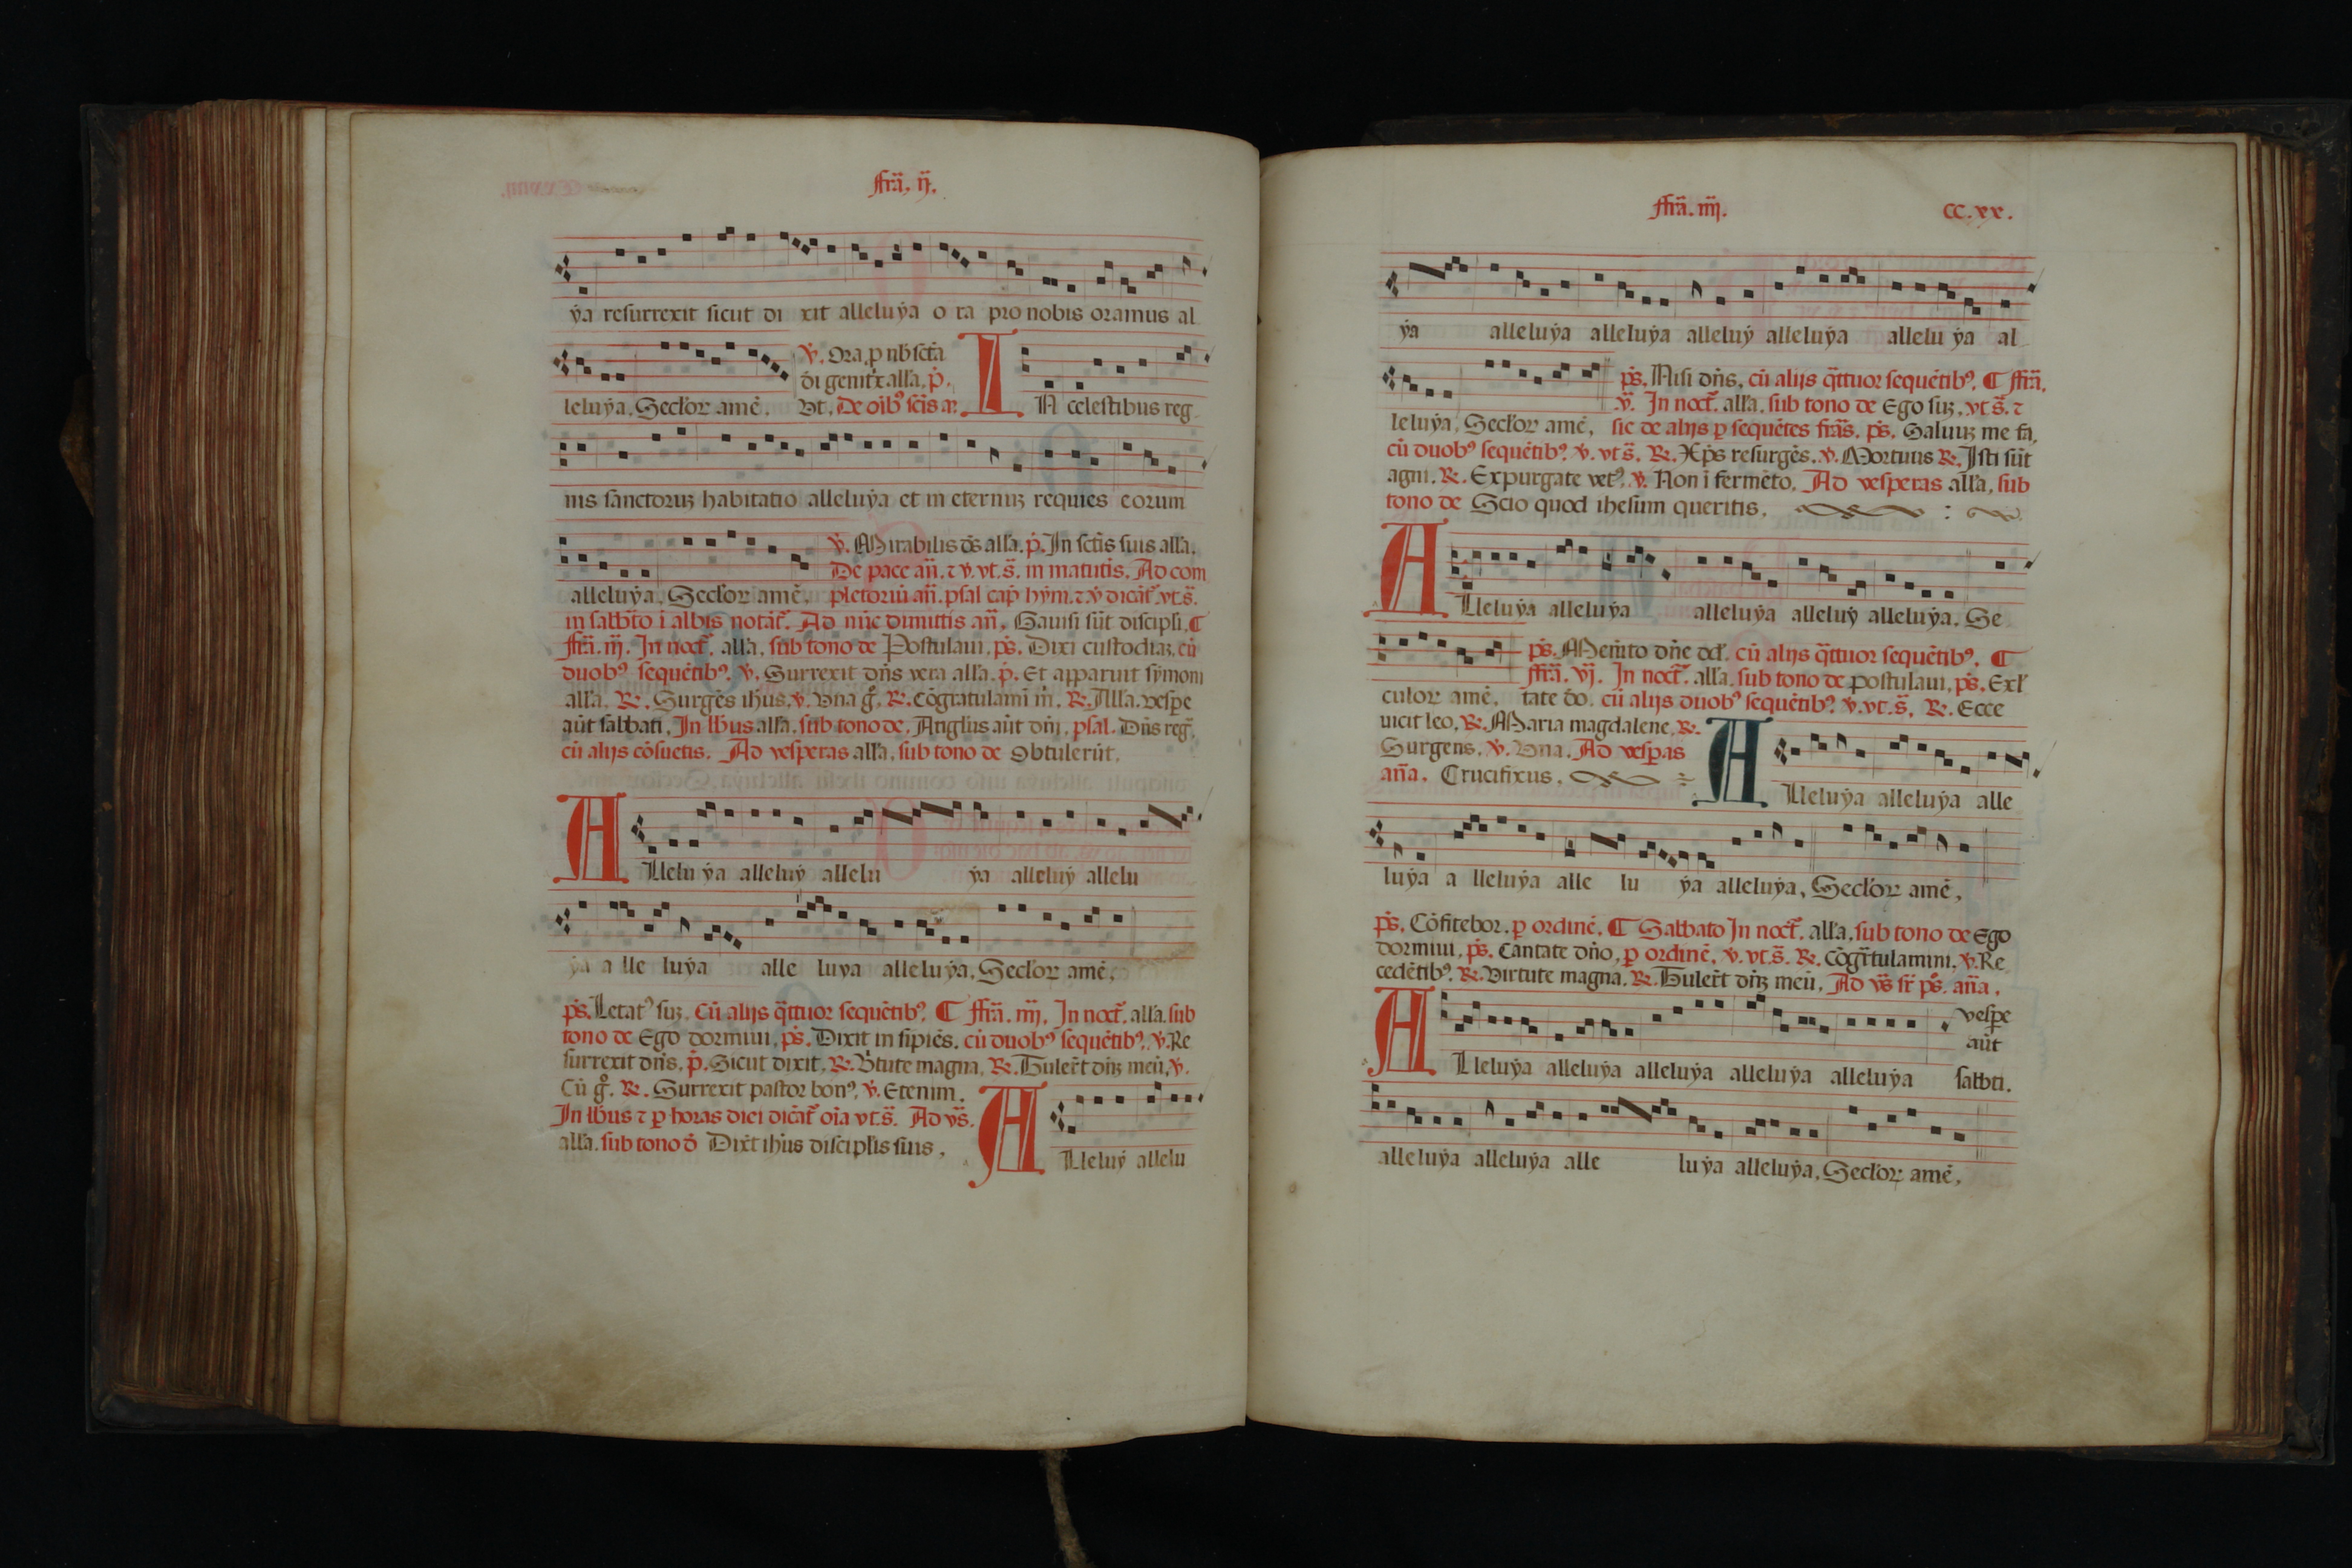 ffrã. ij.
ẏa resurrexit sicut di xit alleluẏa o ra pro nobis oramus al
v̇. Ora. ꝑ nb̄ sct̄a
ꝺi genit͛x all'a. p̄.
leluẏa. Secl'oꝝ amē. Vt. De oib⁹ scīs añ. IN celestibus reg
nis sanctoruꝫ habitatio alleluẏa et in eternuꝫ requies eorum
v̇. Mirabilis ds̄ all'a. p̄. In sctīs suis all'a.
De pace añ. ⁊ v̇. vt. s̄. in matutīs. Ad com
alleluẏa. Secl'oꝝ amē. pletoriū añ. psal cap̄ hẏm. ⁊ v̇ dicāt͛. vt. s̄.
in sabb̄to ī albis notāt͛. Ad nūc dimittis añ. Gauisi sūt discipl'i. ¶
ffrã. iij. In noct͛. all'a. sub tono de Postulaui. ps̄. Dixi custodiaꝫ. cū
duob⁹ sequētib⁹. v̇. Surrexit dn̄s vera all'a. p̄. Et apparuit sẏmoni
all'a. R̷. Surgēs ih̄us. v̇. Vna g̊. R̷. Cōgratulamī m̄. R̷. All'a. vesp̱e
aūt sabbati. In lb̄us all'a. sub tono de. Angl'us aūt dn̄j. psal. Dn̄s reg̃.
cū alijs cōsuetis. Ad vesperas all'a. sub tono de Obtulerūt.
ALlelu ẏa alleluẏ allelu ẏa alleluẏ allelu
ẏa a lle luẏa alle luya alleluẏa. Secl'oꝝ amē.
ps̄. Letat⁹ suꝫ. Cū alijs q̃ttuor sequētib⁹. ¶ ffrã. iiij. In noct͛. all'a. sub
tono de Ego dormiui. ps̄. Dixit in sipiēs. cū duob⁹ sequētib⁹. v̇. Re
surrexit dn̄s. p̄. Sicut dixit. R̷. V̄tute magna. R̷. Tuler̄t dn̄ꝫ meū. v̇.
Cū g̊. R̷. Surrexit pastor bon⁹. v̇. Etenim.
In lb̄us ⁊ ꝑ horas diei dicāt͛ oīa vt. s̄. Ad vs̄.
all'a. sub tono d̄ Dix̄t ih̄us discipl'is suis.
ALleluẏ allelu
ffrã. iiij. CC. xx.
ẏa alleluẏa alleluẏa alleluẏ alleluẏa allelu ẏa al
ps̄. Nisi dn̄s. cū alijs q̃ttuor sequētib⁹. ¶ ffrã.
.v̄. In noct͛. all'a. sub tono de Ego suꝫ. vt s̄. ⁊
leluẏa. Secl'oꝝ amē. sic de alijs ꝑ sequētes frãs. ps̄. Saluuꝫ me fa.
cū duob⁹ sequētib⁹. v̇. vt s̄. R̷. Xp̄s resurgēs. v̇. Mortuus R̷. Isti sūt
agni. R̷. Expurgate vet⁹. v̇. Non ī fermēto. Ad vesperas all'a. sub
tono de Scio quod ihesum queritis.
ALleluẏa alleluẏa alleluẏa alleluẏ alleluẏa. Se
ps̄. Memēto dn̄e dd'. cū alijs q̃ttuor sequētib⁹. ¶
ffrã. vj. In noct͛. all'a. sub tono de postulaui. ps̄. Exl'
culoꝝ amē. tate d̄o. cū alijs duob⁹ sequētib⁹. v̇. vt. s̄. R̷. Ecce
uicit leo. R̷. Maria magdalene. R̷.
Surgens. v̇. Vna. Ad vesp̱as
añ̄a. Crucifixus.
ALleluẏa alleluẏa alle
luẏa a lleluẏa alle lu ẏa alleluẏa. Secl'oꝝ amē.
ps̄. Cōfitebor. ꝑ ordinē. ¶ Sabbato In noct͛. all'a. sub tono de Ego
dormiui. ps̄. Cantate dn̄o. ꝑ ordinē. v̇. vt. s̄. R̷. Cōgr̃tulamini. v̇. Re
cedētib⁹. R̷. Virtute magna. R̷. Tuler̄t dn̄ꝫ meū. Ad vs̄ sr̄ ps̄. añ̄a.
vesp̱e
aūt
ALleluẏa alleluẏa alleluẏa alleluẏa alleluẏa sabb̄ti.
alleluẏa alleluẏa alle luẏa alleluẏa. Secl'oꝝ amē.